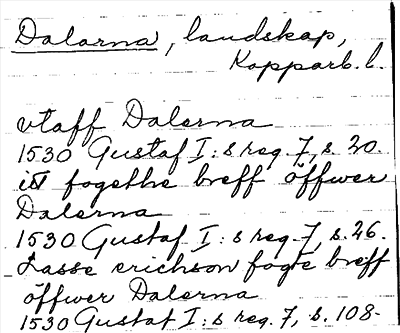 Dalarna, landskap,
Kopparb. l.
vtaff Dalerna
1530 Gustaf I: s reg. 7, s. 20.
itt fogethe breff öffwer
Dalerna
1530 Gustaf I: s reg. 7, s. 26.
Lasse erichson fogte breff
öffwer Dalerna
1530 Gustaf I: s reg. 7, s. 108-